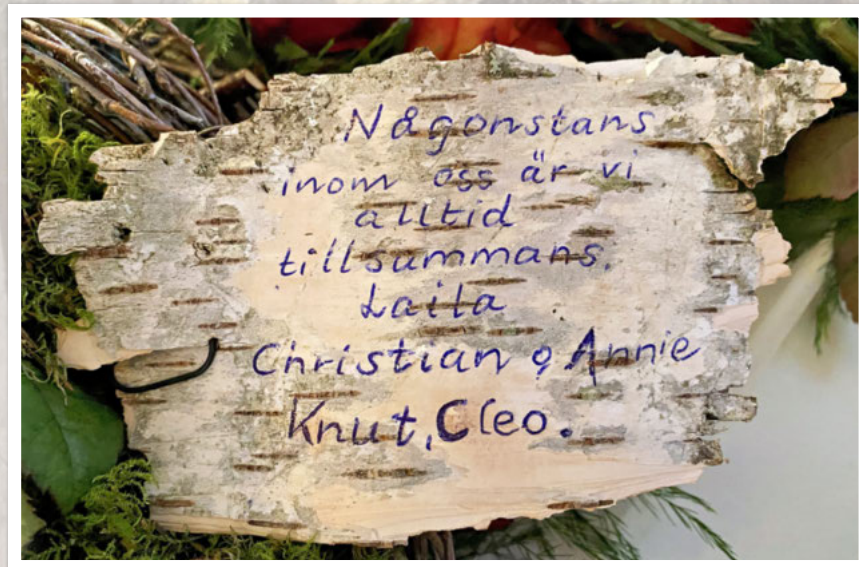 Någonstans
inom oss är vi
alltid
tillsummans.
Laila
Christian o Annie
Knut, Cleo.